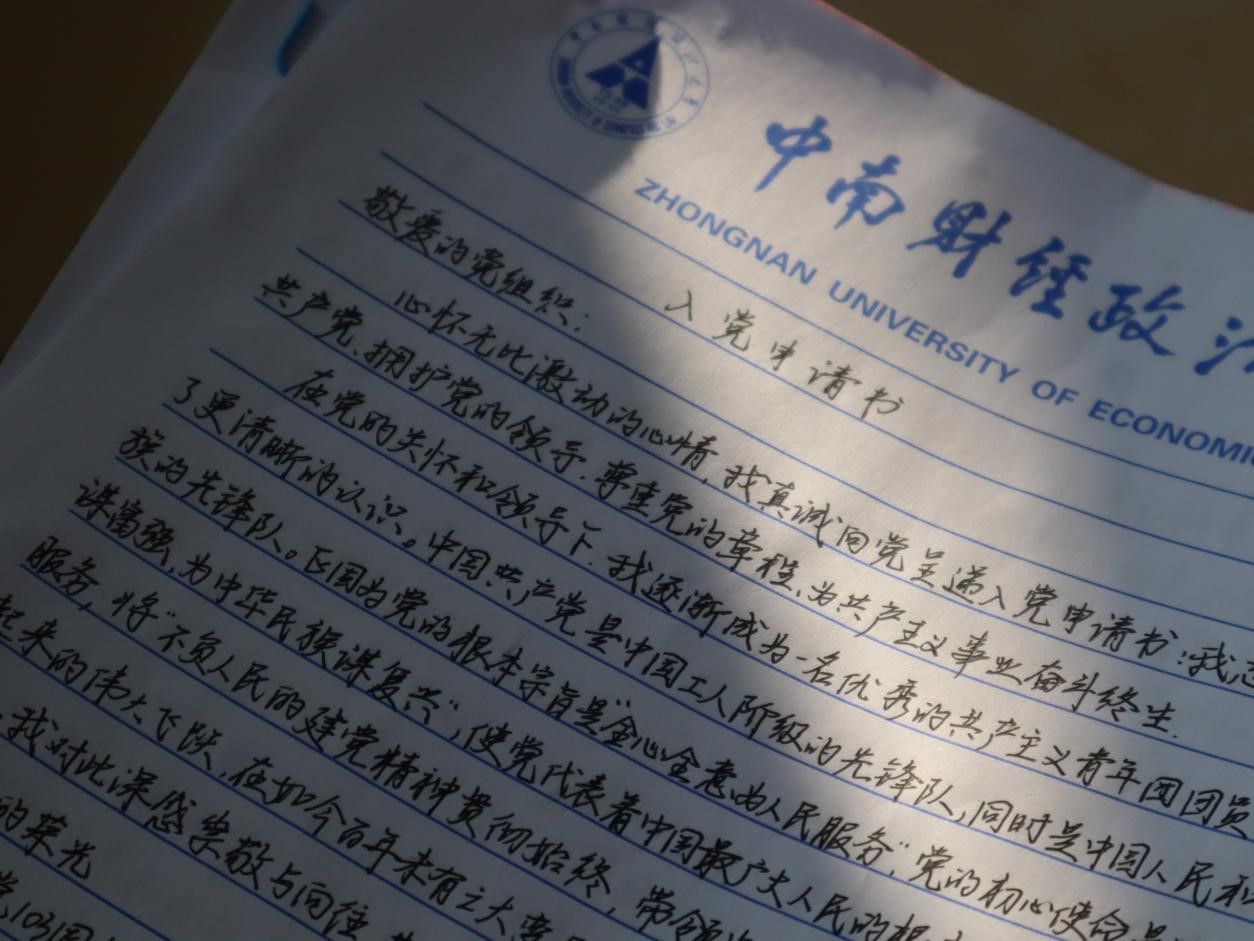 中南财经政
ZHONGNAN UNIVERSITY OF ECONOMI
入党申请书
敬爱的党组织:
心怀无比激动的心情,我真诚向党呈递入党申请书:我志
共产党、拥护党的领导.尊重党的章程,为共产主义事业奋斗终生.
在党的关怀和领导下.我逐渐成为一名优秀的共产主义青年团团员
了更清晰的认识。中国共产党是中国工人阶级的先锋队,同时是中国人民和
族的先锋队。正因为党的根本宗旨是“全心全意为人民服务”,党的初心使命是
谋富强,为中华民族谋复兴”,使党代表着中国最广大人民的根
服务,将“不负人民的建党精神贯彻始终,带领
起来的伟大飞跃.在如今百年未有之大变
,我对此深感崇敬与向往
的荣光